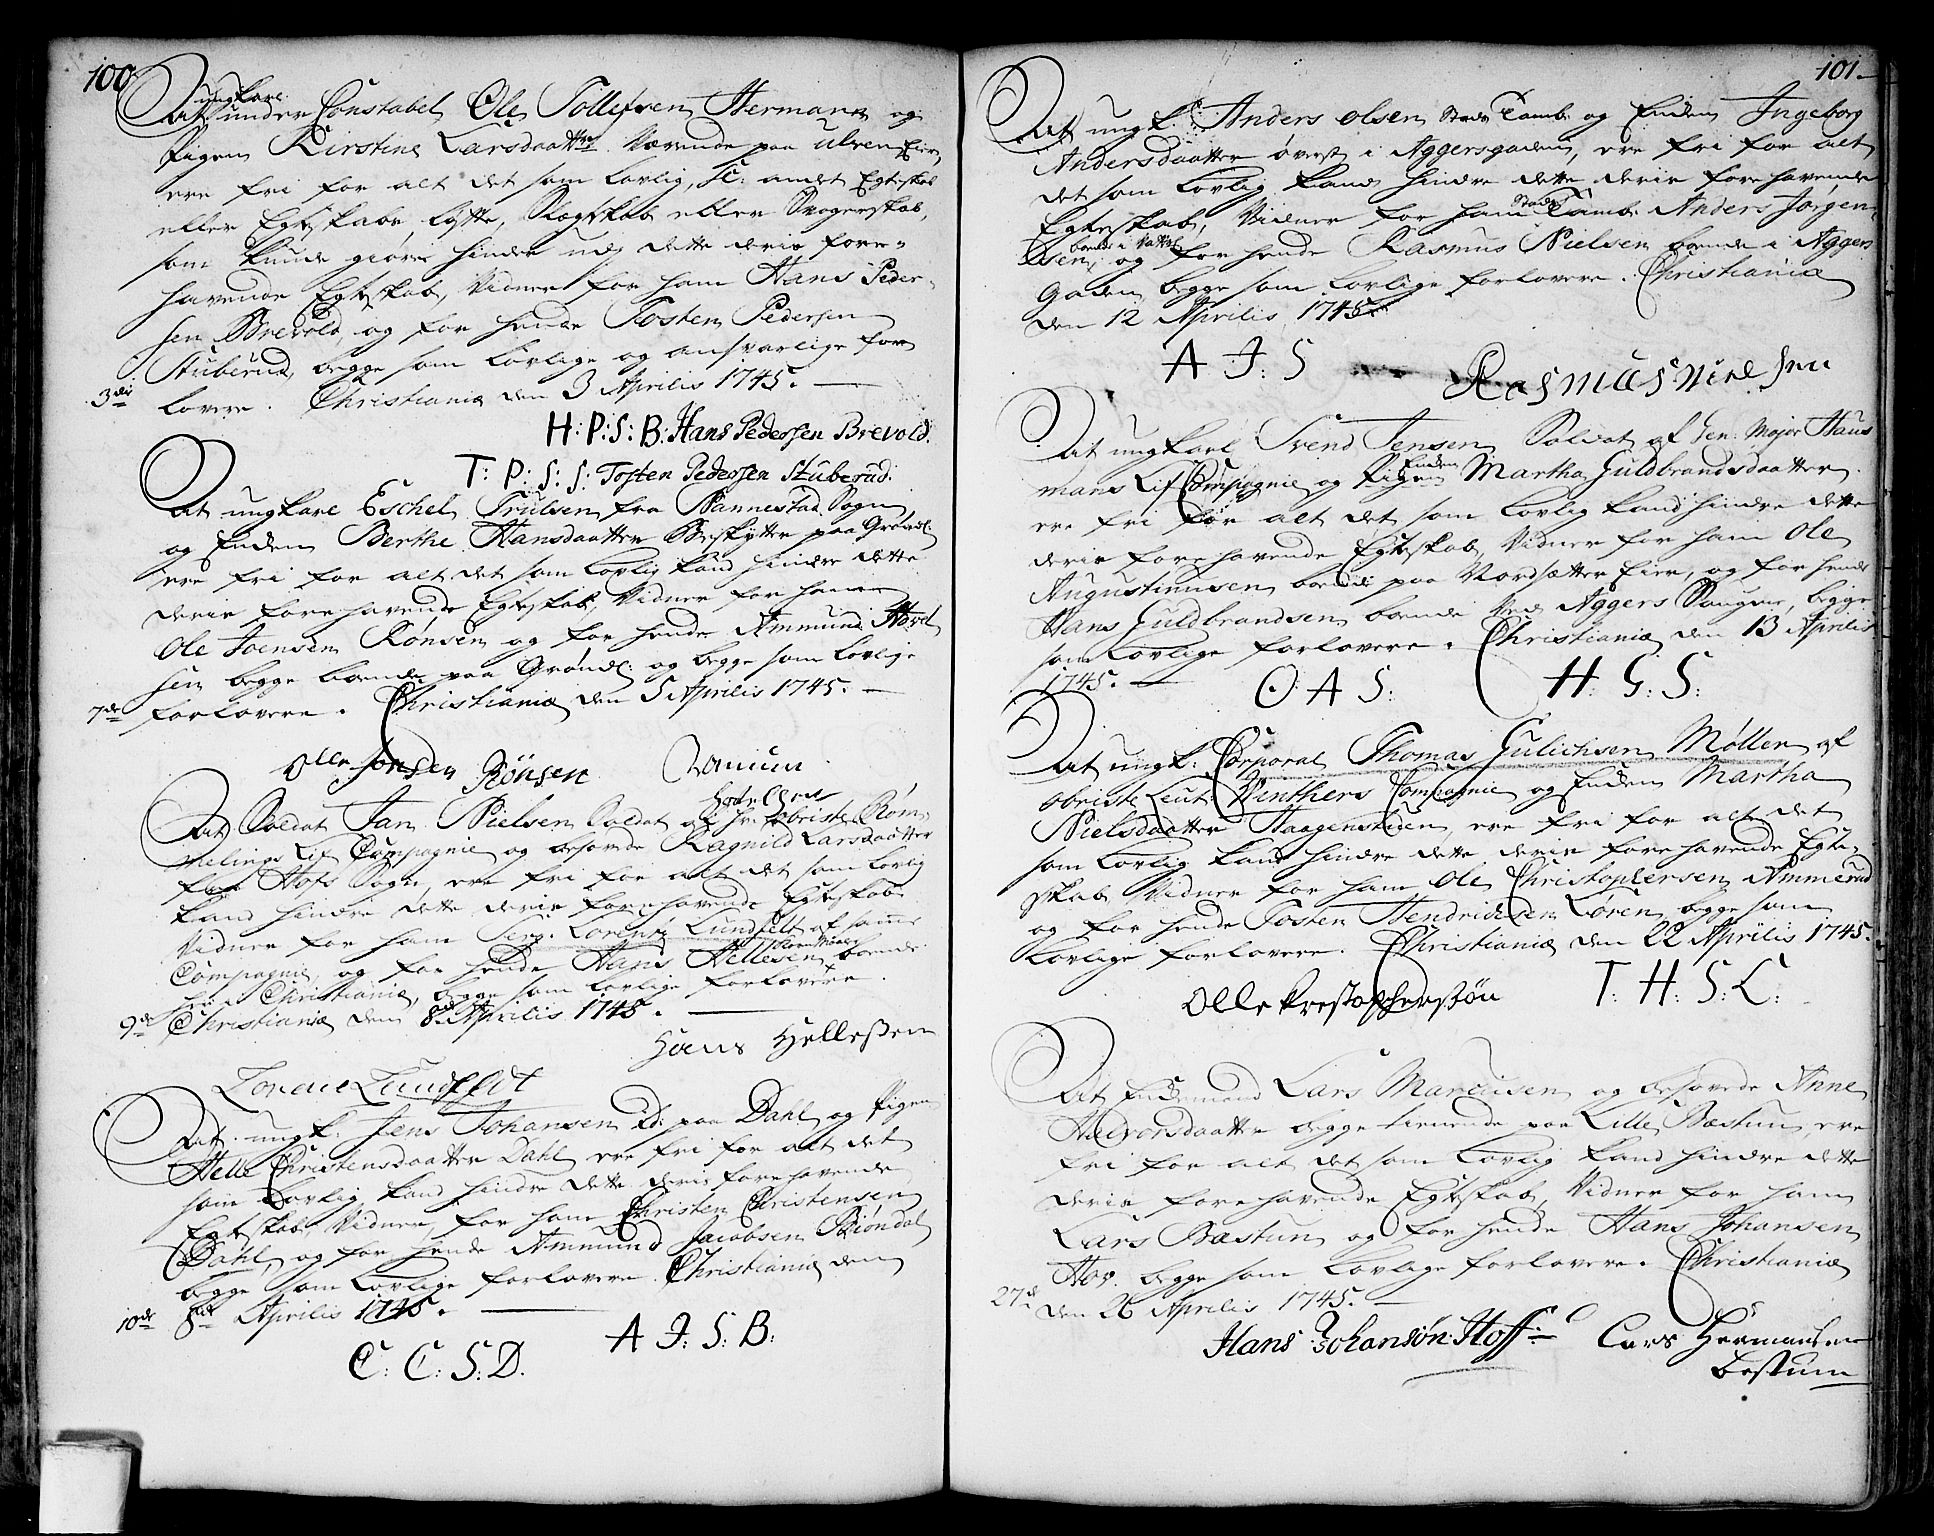 100
ungkarl
At under Constabel Ole Tollefsen Hermann og
Pigen Kirstine Larsdaatter Værende paa Ulven Eier,
ere fri for alt det som lovlig, sc: andet Egteskab
eller Egteskabs løfte, Slegtskab eller Svogerskab,
som kunde giøre hinder udj dette deris fore-
havende Egteskab, Vidner for ham Hans Peder-
sen Brevold, og for hende Tosten Pedersen
Stuberud, begge som lovlige og ansvarlige for-
3die lovere. Christiania den 3 Aprilis 1745.
H: P: S: B: Hans Pedersen Brevold.
T: P: S: S: Tosten Pedersen Stuberud.
At ungkarl Eschel Trulsen fra Nannestad Sogn
og Enden Berthe Hansdaatter Beskytter paa Grønl:
ere fri for alt det som lovlig kand hindre dette
deris forehavende Egteskab, Vidner for ham
Ole Joensen Rønsen og for hende Ammund
sen begge boende paa Grønl: og begge som lovlige
7de forlovere. Christiania den 5 Aprilis 1745.
Olle Jonsen Rønsen
At Soldat Jan Nielsen Soldat af Hr: Obriste Røm-
melings Lif Compagnie og besovede Ragnild Larsdaatter
fra Hofs Sogn, ere fri for alt det som lovlig
kand hindre dette deris forehavende Egteskab
Vidner for ham Serg: Lorentz Lundfelt af samme
Compagnie, og for hende Hans Hellesen boende
her i Christiania, begge som lovlige forlovere
9de Christiania den 8de Aprilis 1745.
Hans Hellesen
Lorens Lundfeldt
At ungk: Jens Johansen ibd: paa Dahl og Pigen
Helle Christensdaatter Dahl ere fri for alt det
som lovlig kand hindre dette deris forehavende
Egteskab, Vidner, for ham Christen Christensen
Dahl, og for hende Ammund Jacobsen Biøndal
begge som lovlige forlovere. Christiania den
10de 8de Aprilis 1745.
C: C: S: D.
A J: S: B:
101.
At ungk: Anders Olsen Stads Tamb: og Enden Ingeborg
Andersdaatter øverst i Aggersgaden, ere fri for alt
det som lovlig kand hindre dette deris forehavende
Egteskab, Vidner for ham Stads Tamb: Anders Jørgen-
sen, og for hende Rasmus Nielsen boende i Aggers
Gaden begge som lovlige forlovere. Christiania
den 12 Aprilis 1745.
A J: S Rasmus Nielsen
At ungkarl Svend Jensen Soldat af Gen: Major Haus
mans Lif Compagnie og Enden Martha Guldbrandsdaatter
ere fri for alt det som lovlig kand hindre dette
deris forehavende Egteskab, Vidner for ham Ole
Augustinusen boende paa Nordsætter Eier, og for hende
Hans Guldbrandsen boende Ved Aggers Saugene, begge
som lovlige forlovere. Christiania den 13 Aprilis
1745.
O: A S: H: G: S:
At ungk: Corporal Thomas Gulichsen Møller af
Obriste Leut: Winthers Compagnie og Enden Martha
Nielsdaatter Haagenstuen, ere fri for alt det
som lovlig kand hindre dette deris forehavende Egte-
skab Vidner for ham Ole Christophersen Ammerud
og for hende Tosten Hendrichsen Løren begge som
lovlige forlovere. Christiania den 22 Aprilis 1745.
Olle Krestophersøn T: H: S: L:
At Enckemand Lars Marcusen og besovede Anne
Halvorsdaatter begge tienende paa Lille Bæstum, ere
fri for alt det som lovlig kand hindre dette
deris forehavende Egteskab, Vidner for ham
Lars Bæstun og for hende Hans Johansen
Hov. begge som lovlige forlovere. Christiania
27de den 26 Aprilis 1745.
Hans Johansøn Hoff: Lars Hermansen
bestum